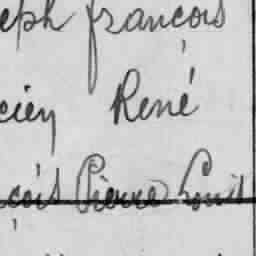 eph françois
cien René
çois Pierre Louis